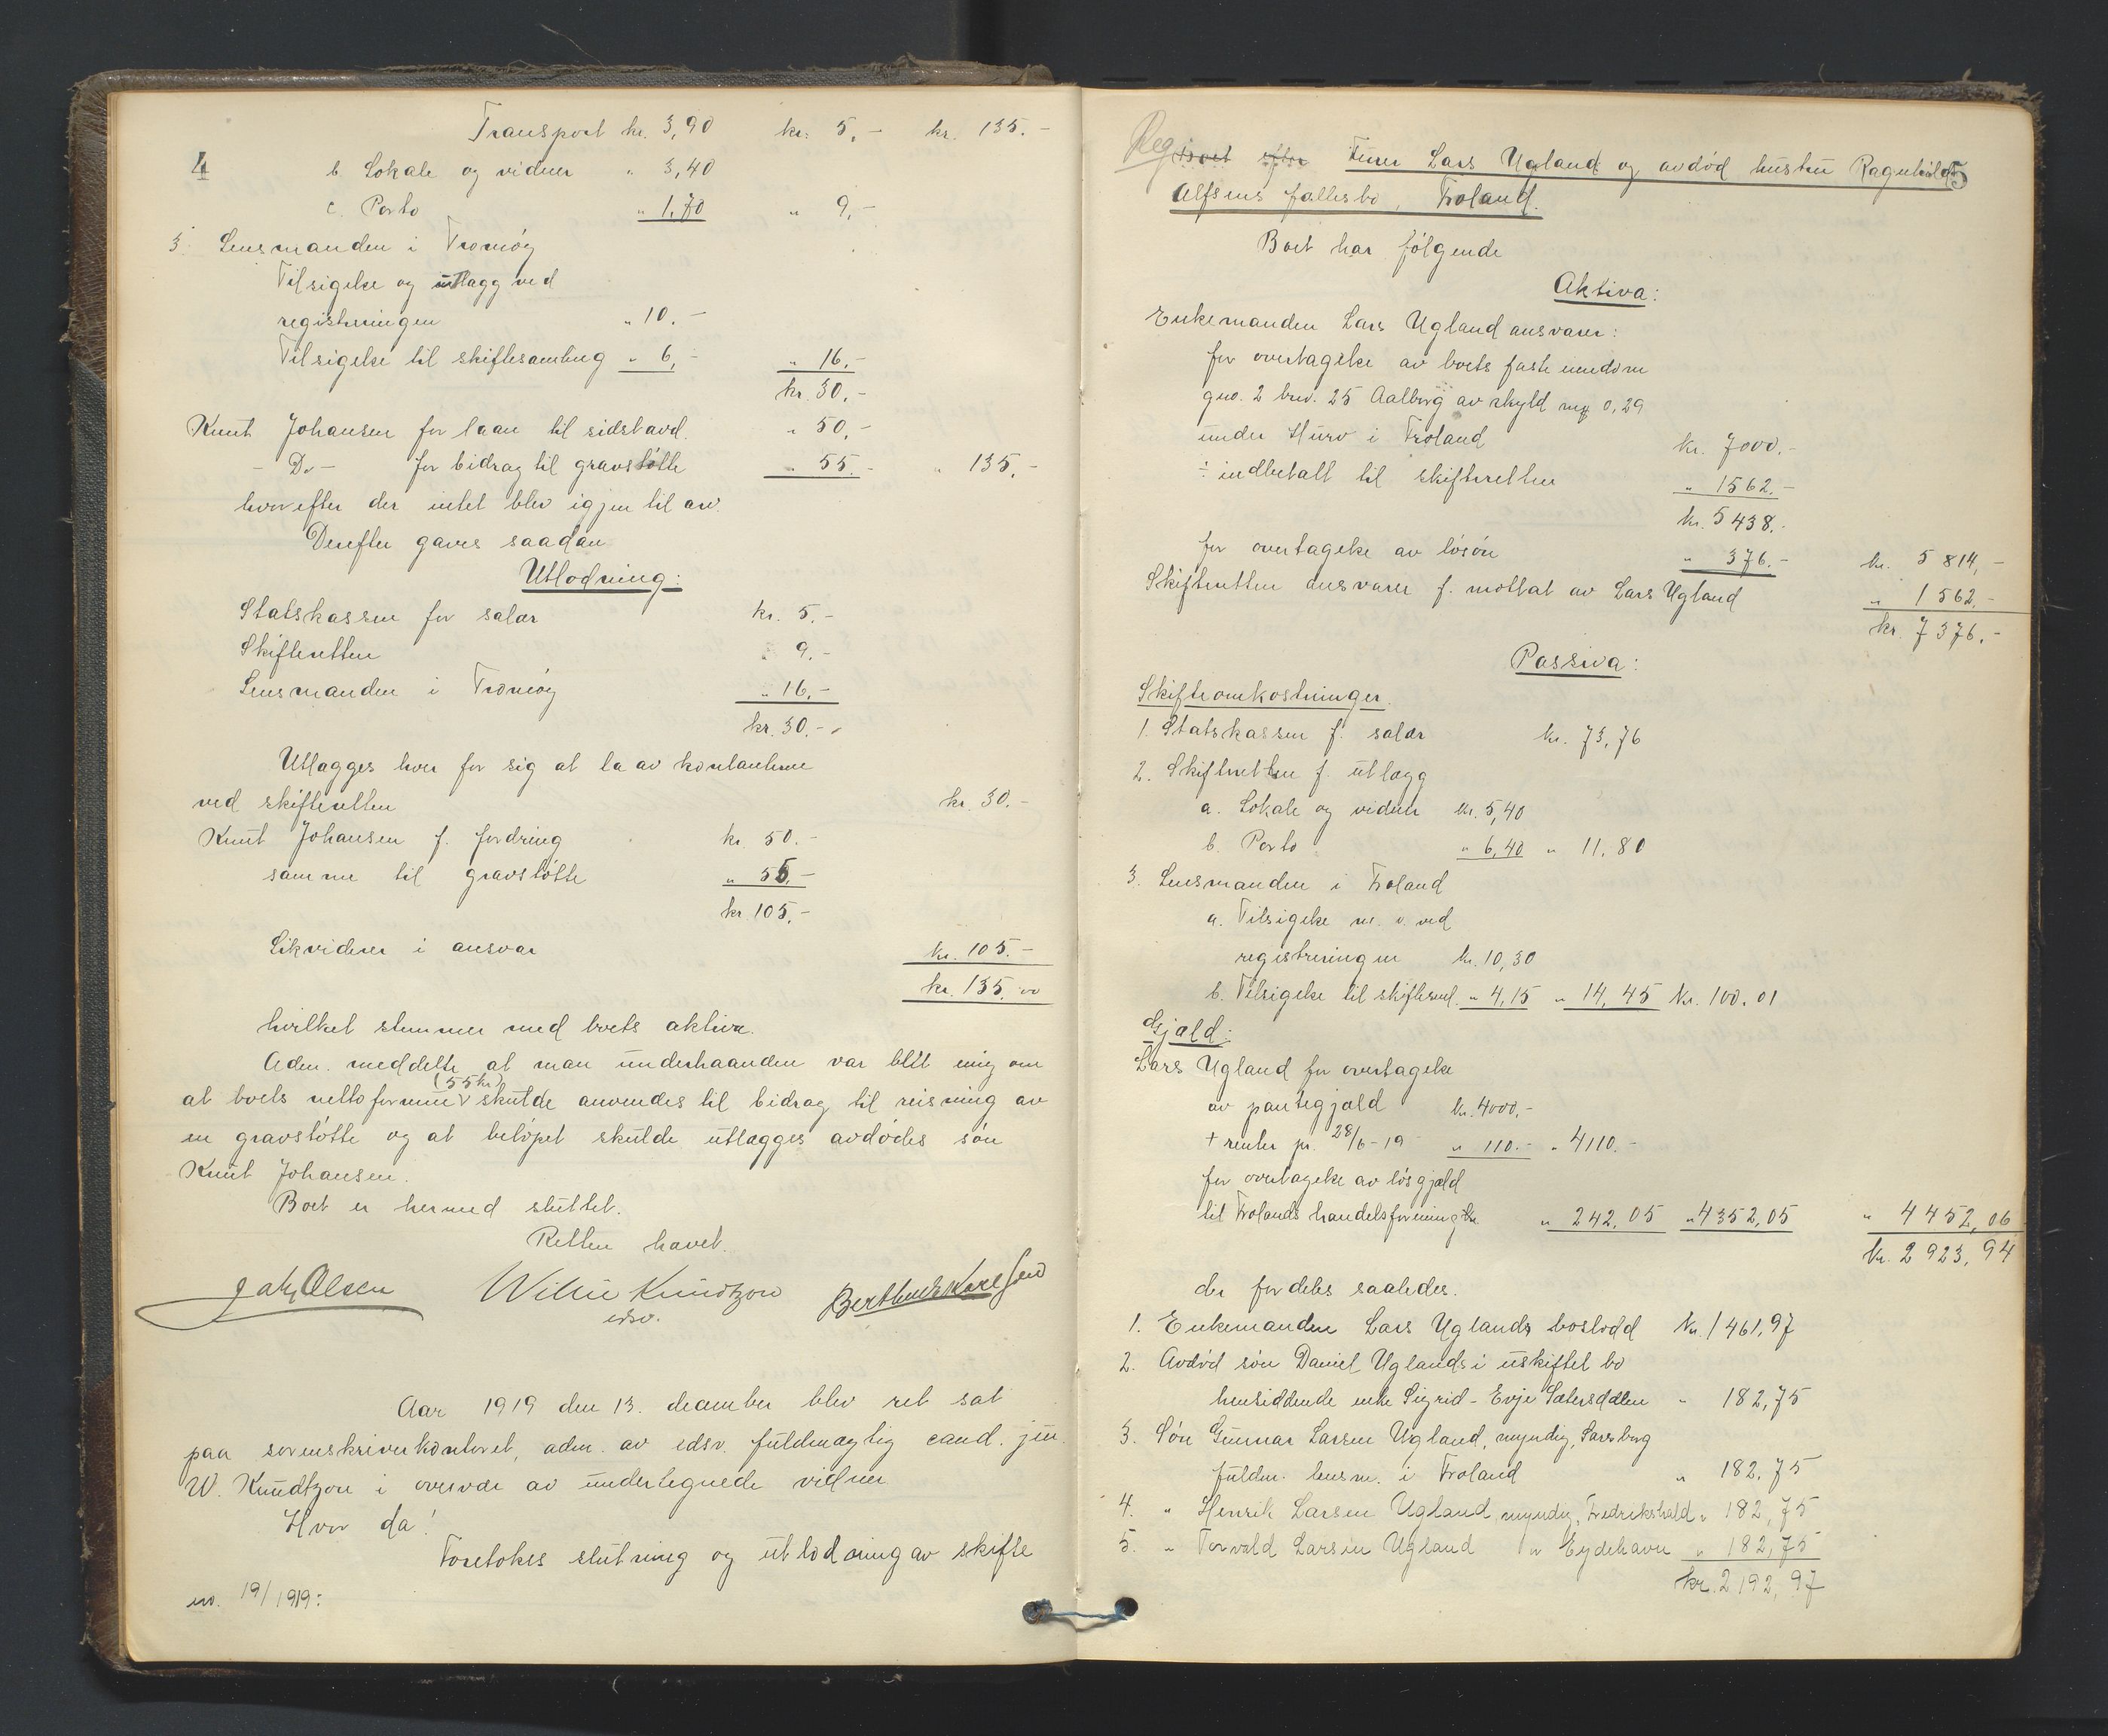 4
Transport kr. 3,90 kr. 5,- kr. 135.-
b. Lokale og vidner " 3,40
c. Porto " 1,70 " 9,-
3. Lensmanden i Tromøy
Tilsigelse og utlagg ved
registreringen " 10.-
Tilsigelse til skiftesamling " 6,- " 16.-
kr. 30.-
Knut Johansen for laan til sidstavd. " 50,-
- Do - for bidrag til gravstøtte " 55.- " 135.-
hvorefter der intet blev igjen til arv.
Derefter gaves saadan
Utlodning:
Statskassen for salær kr. 5.-
Skifteretten " 9.-
Lensmanden i Tromøy " 16.-
kr. 30.-
Utlægges hver for sig at ta av kontanterne
ved skifteretten kr. 30.-
Knut Johansen f. fordring kr. 50.-
samme til gravstøtte " 55.-
kr. 105.-
Likviderer i ansvar kr. 105.-
kr. 135,00
hvilket stemmer med boets aktiva.
Adm. meddelte at man underhaanden var blit enig om
at boets nettoformue (55 kr) skulde anvendes til bidrag til reisning av
en gravstøtte og at beløpet skulde utlægges avdødes søn
Knut Johansen.
Boet er hermed sluttet.
Retten hævet.
Jak Olsen Wilh Knudtzon Berthud Karlsen
edsv.
Aar 1919 den 13. december blev ret sat
paa sorenskriverkontoret, adm. av edsv. fuldmægtig cand. jur.
W. Knudtzon i overvær av undertegnede vidner
Hvor da!
Foretokes slutning og utlodning av skifte
no. 19/1919:
5
Reg Boet efter Timr Lars Ugland og avdød hustru Ragnhild
Alfsens fællesbo, Froland.
Boet har følgende
Aktiva:
Enkemanden Lars Ugland ansvarer:
for overtagelse av boets faste eiendom
gno. 2 bno. 25 Aalborg av skyld mk 0,29
under Hurv i Froland kr. 7000.-
÷ indbetalt til skifteretten " 1562.-
kr. 5438.-
for overtagelse av løsøre " 376.- kr. 5814,-
Skifteretten ansvarer f. mottat av Lars Ugland " 1562.-
kr. 7376.-
Passiva:
Skifteomkostninger.
1. Statskassen f. salær kr. 73,76
2. Skifteretten f. utlægg
a. Lokale og vidner kr. 5,40
b. Porto " 6,40 " 11.80
3. Lensmanden i Froland
a. Tilsigelse m. v. ved
registreringen kr. 10,30
b. Tilsigelse til skiftesml. " 4,15 " 14,45 Kr. 100.01
Gjæld:
Lars Ugland for overtagelse
av pantegjæld kr. 4000.-
+ renter pr. 28/6-19 " 110.- " 4110.-
for overtagelse av løsgjæld
til Frolands handelsforening " 242,05 " 4352,05 " 4452,06
Kr. 2923,94
der fordeles saaledes.
1. Enkemanden Lars Uglands boslodd Kr. 1461,97
2. Avdød søn Daniel Uglands i uskiftet bo
hensiddende enke Sigrid - Evje Sætersdalen " 182,75
3. Søn Gunnar Larsen Ugland, myndig, Sarsborg
fuldm. lensm. i Froland " 182,75
4. " Henrik Larsen Ugland myndig, Fredrikshald " 182,75
5. " Torvald Larsen Ugland " Eydehavn " 182,75
kr. 2192,97